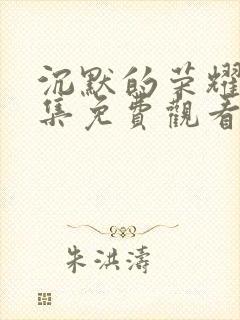 沉默的荣耀
集免費觀看
朱洪濤